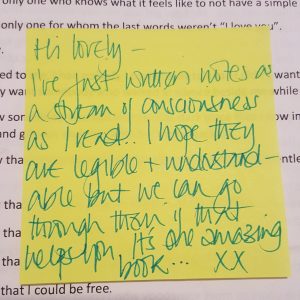 only one who knows what it feels like to not have a simple
only one for whom the last words weren't "I love you".
Hi lovely –
I've just written notes as
a stream of consciousness
as I read.. I hope they
are legible + understand-
able but we can go
through them if that
helps you. It's one amazing
book... XX
that I could be free.